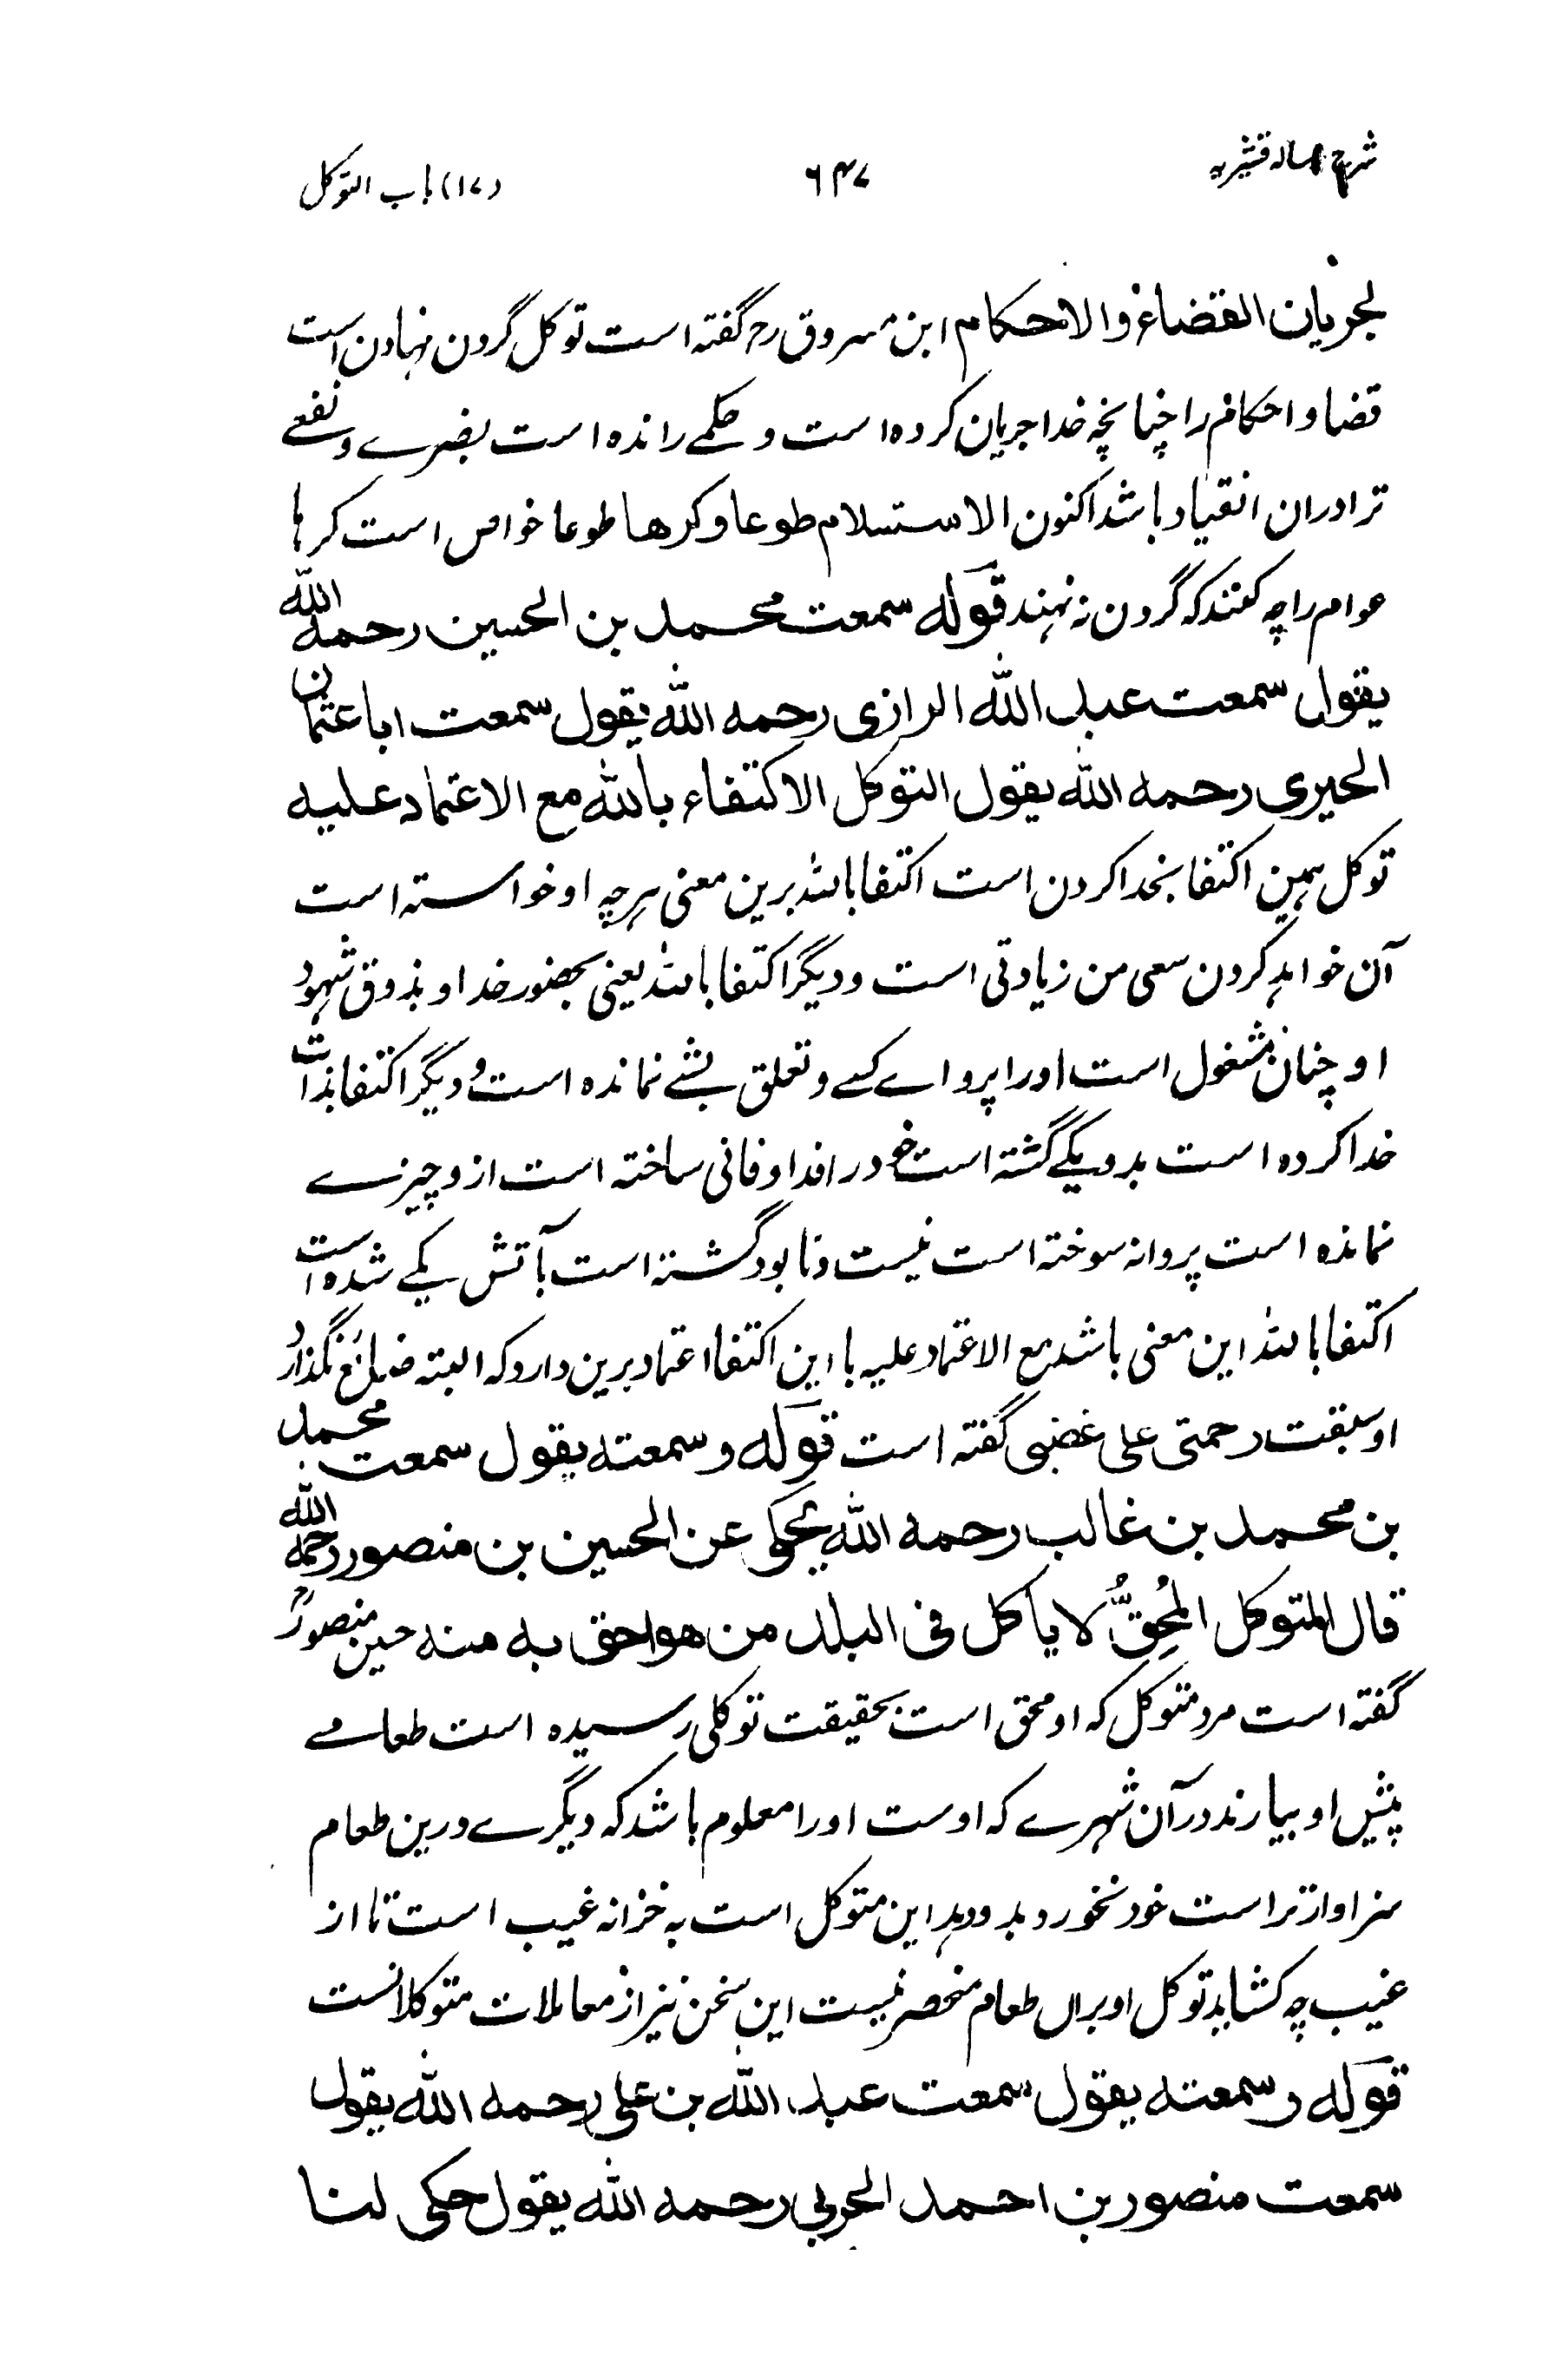 شرح رسالہ قشیریہ
۶۴۷
(۱۷) باب التوکل
لجریان القضاء والاحکام ابن مسروق رح گفتہ است توکل گردن نہادن است
قضا و احکام را چنانچہ خدا جریان کردہ است و حکمے راندہ است بضرے و نفعے
ترا دران انقیاد باشد اکنون الاستسلام طوعا وکرھا طوعا خواص است کرہا
عوام را چہ کنند کہ گردن نہ نہند قولہ سمعت محمد بن الحسین رحمہ اللہ
یقول سمعت عبد اللہ الرازی رحمہ اللہ یقول سمعت ابا عثمان
الحیری رحمہ اللہ یقول التوکل الاکتفاء باللہ مع الاعتماد علیہ
توکل ہمین اکتفا بخدا کردن است اکتفا باللہ برین معنی ہرچہ او خواستہ است
آن خواہد کردن سعی من زیادتی است و دیگر اکتفا باللہ یعنی بحضور خدا و بذوق شہود
او چنان مشغول است اورا پرواے کسے و تعلق بشئے نماندہ است و دیگر اکتفا بذات
خدا کردہ است بدو یکے گشتہ است خود را فدا و فانی ساختہ است ازو چیزے
نماندہ است پروانہ سوختہ است نیست و نابود گشتہ است آتش یکے شدہ است
اکتفا باللہ این معنی باشد مع الاعتماد علیہ با این اکتفا اعتماد برین دارد کہ البتہ ضائع نگذارد
او سبقت رحمتی علی غضبی گفتہ است قولہ وسمعتہ یقول سمعت محمد
بن محمد بن غالب رحمہ اللہ یحکی عن الحسین بن منصور رحمہ اللہ
قال المتوکل المُحِقُّ لا یاکل فی البلد من ھو احق بہ منہ حسین منصور رح
گفتہ است مرد متوکل کہ او محق است بحقیقت توکلی رسیدہ است طعامے
پیش او بیارند در آن شہرے کہ اوست اورا معلوم باشد کہ دیگرے درین طعام
سزاوارتر است خود نخورد بدو دہد این متوکل است بہ خزانہ غیب است تا از
غیب چہ کشاید توکل او براں طعام منحصر نیست این سخن نیز از معاملات متوکلانست
قولہ وسمعتہ یقول سمعت عبد اللہ بن علی رحمہ اللہ یقول
سمعت منصور بن احمد الحربی رحمہ اللہ یقول حکی لنا